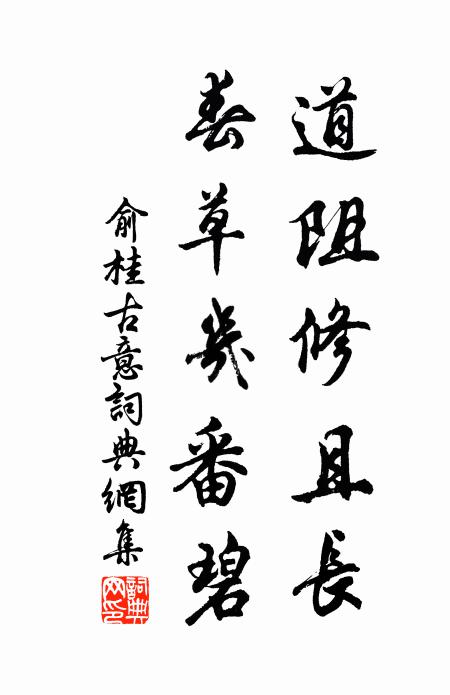 道阻修且長
春草幾番碧
俞桂古意詞典網集
詞典